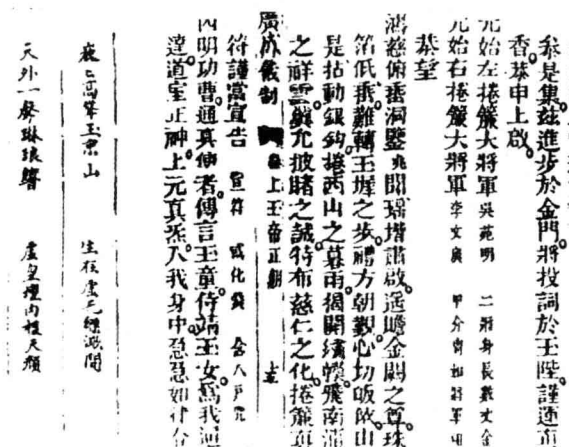 叅是集玆進步於金門將投詞於玉陛謹運真
香恭申上啟
元始左捲簾大將軍 吳苑明 二將身長數丈金
元始右捲簾大將軍 李文廣 甲
恭望
鴻慈俯垂洞鑒 兆聞瑤堦肅啟遙瞻金闕之尊珠
箔低垂難轉玉墀之步禮方朝覲心切皈依由
是拈動銀鈎捲西山之暮雨揭開繡幙飛南浦
之祥雲冀允披睹之誠特布慈仁之化捲簾真
廣成儀制 上玉帝正朝 十五
符謹當宣告 宣符 咒
四明功曹通真使者傳言玉童侍靖玉女為我通
達道室正神上元真炁入我身中急急如律令
夜 高 玉京山
天外一聲琳琅響 虛皇壇內禮天顏